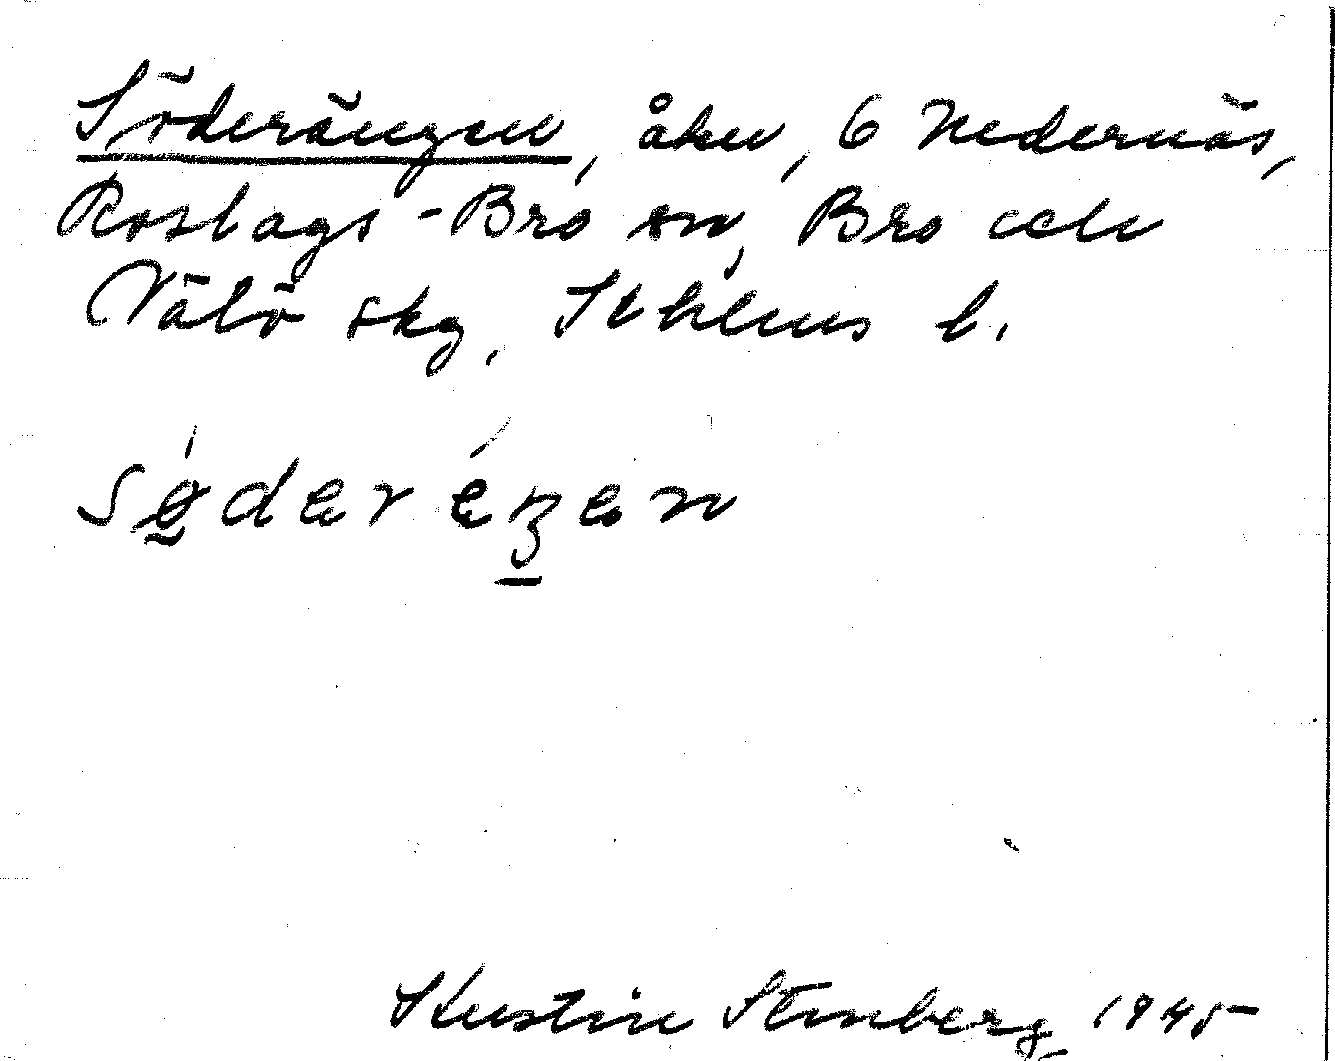 Söderängen, åker, 6 Nedernäs,
Roslags-Bro sn, Bro och
Vätö skg, Sthlms l.
Kerstin Stenberg 1945